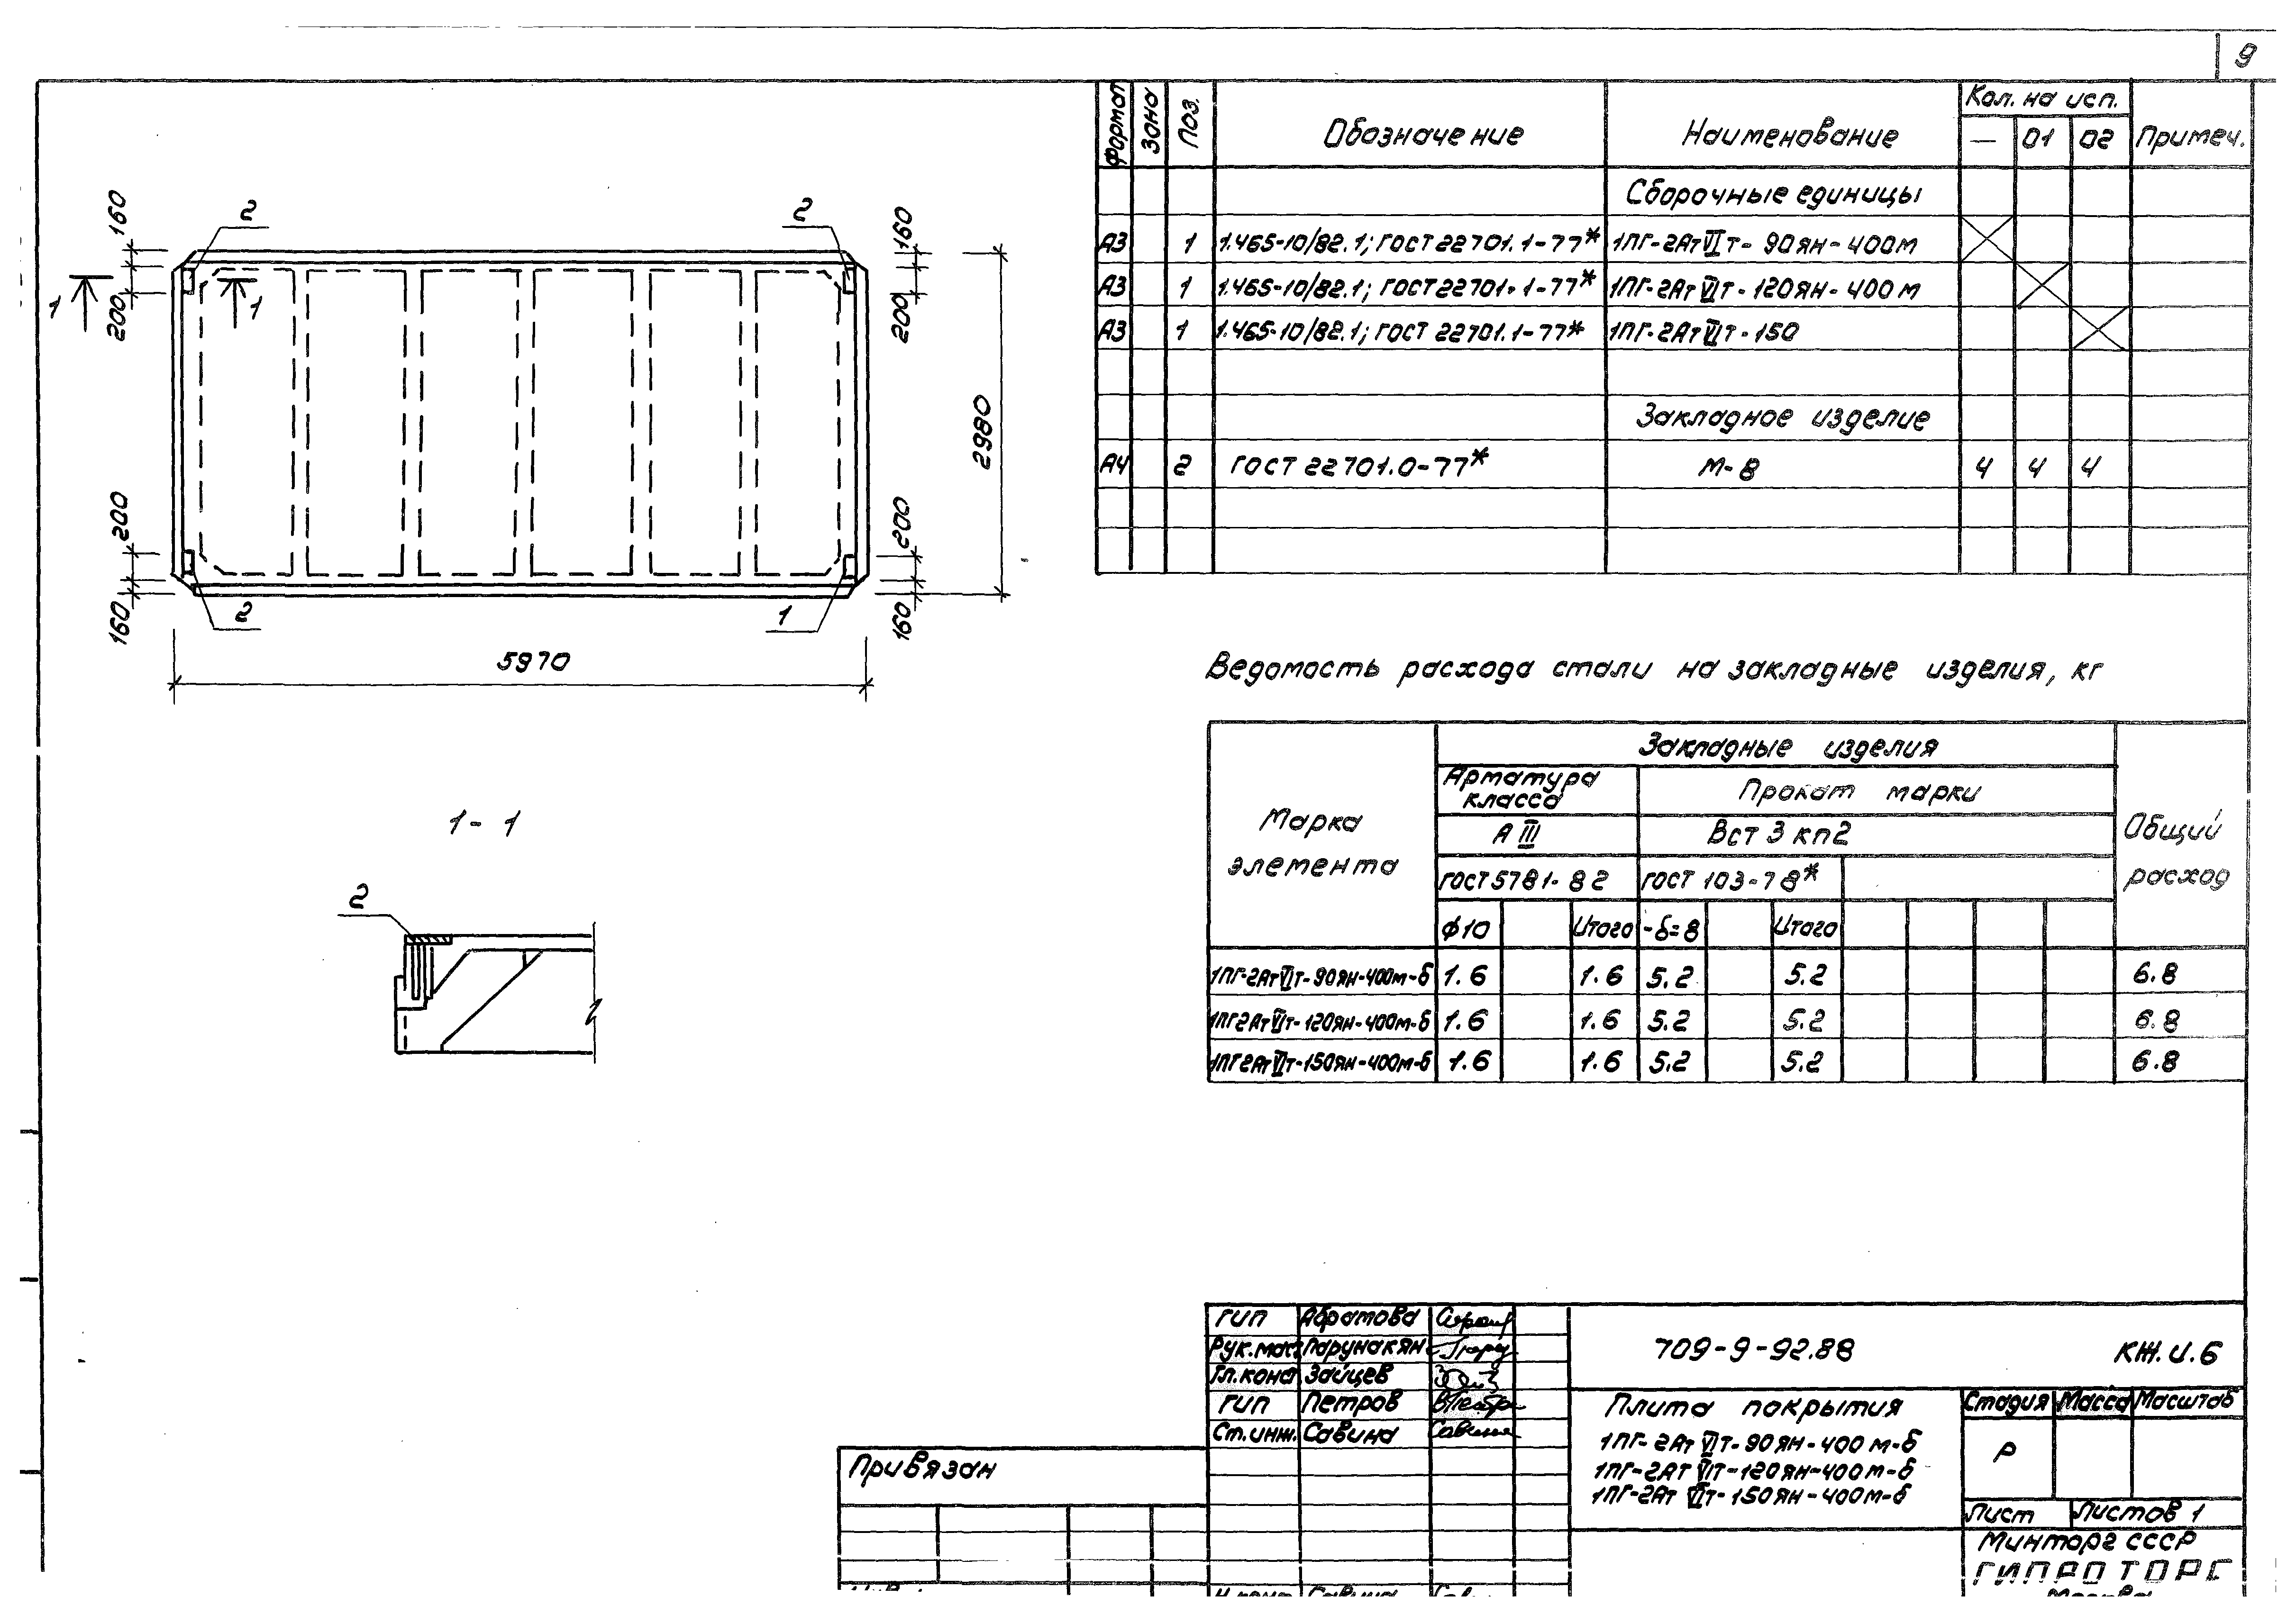 9
Формат Зона Поз. Обозначение Наименование Кол. на исп. Примеч.
— 01 02
Сборочные единицы
А3 1 1.465-10/82.1; ГОСТ 22701.1-77* 1ПГ-2АтVIт-90ЯН-400М
А3 1 1.465-10/82.1; ГОСТ 22701.1-77* 1ПГ-2АтVIт-120ЯН-400М
А3 1 1.465-10/82.1; ГОСТ 22701.1-77* 1ПГ-2АтVIт-150
Закладное изделие
А4 2 ГОСТ 22701.0-77* М-8 4 4 4
160 2 2 160
1 1
200 200
2980
200 200
160 2 1 160
5970
1-1
2
Ведомость расхода стали на закладные изделия, кг
Марка элемента Закладные изделия Общий расход
Арматура класса Прокат марки
А III ВСт 3 кп2
ГОСТ 5781-82 ГОСТ 103-78*
ф10 Итого -δ=8 Итого
1ПГ-2АтVIт-90ЯН-400М-δ 1.6 1.6 5.2 5.2 6.8
1ПГ2АтVIт-120ЯН-400М-δ 1.6 1.6 5.2 5.2 6.8
1ПГ2АтVIт-150ЯН-400М-δ 1.6 1.6 5.2 5.2 6.8
ГИП Абратова
Рук.маст Парунакян
Гл.конс Зайцев
ГИП Петров
Ст.инж. Савина
709-9-92.88 КЖ.И.6
Плита покрытия
1ПГ-2АтVIт-90ЯН-400М-δ
1ПГ-2АтVIт-120ЯН-400М-δ
1ПГ-2АтVIт-150ЯН-400М-δ
Стадия Масса Масштаб
Р
Лист Листов 1
Минторг СССР
ГИПРОТОРГ
Привязан